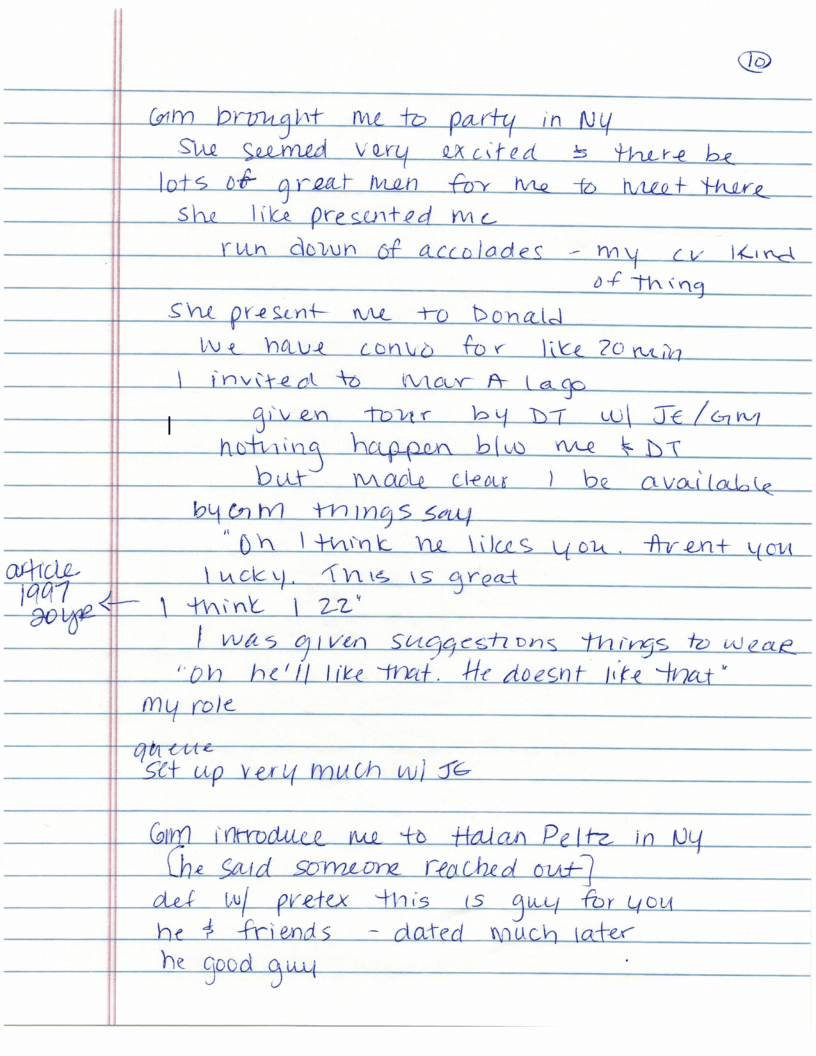 10
GM brought me to party in NY
She seemed very excited & there be
lots of great men for me to meet there
she like presented me
run down of accolades - my cv kind
of thing
she present me to Donald
We have convo for like 20 min
I invited to Mar A lago
given tour by DT w/ JE/GM
nothing happen b/w me & DT
but made clear I be available
by GM things say
"Oh I think he likes you. Arent you
lucky. This is great
article
1997
I think I 22"
I was given suggestions things to wear
"oh he'll like that. He doesnt like that"
my role
set up very much w/ JE
GM introduce me to Halan Peltz in NY
[he said someone reached out]
def w/ pretex this is guy for you
he & friends - dated much later
he good guy